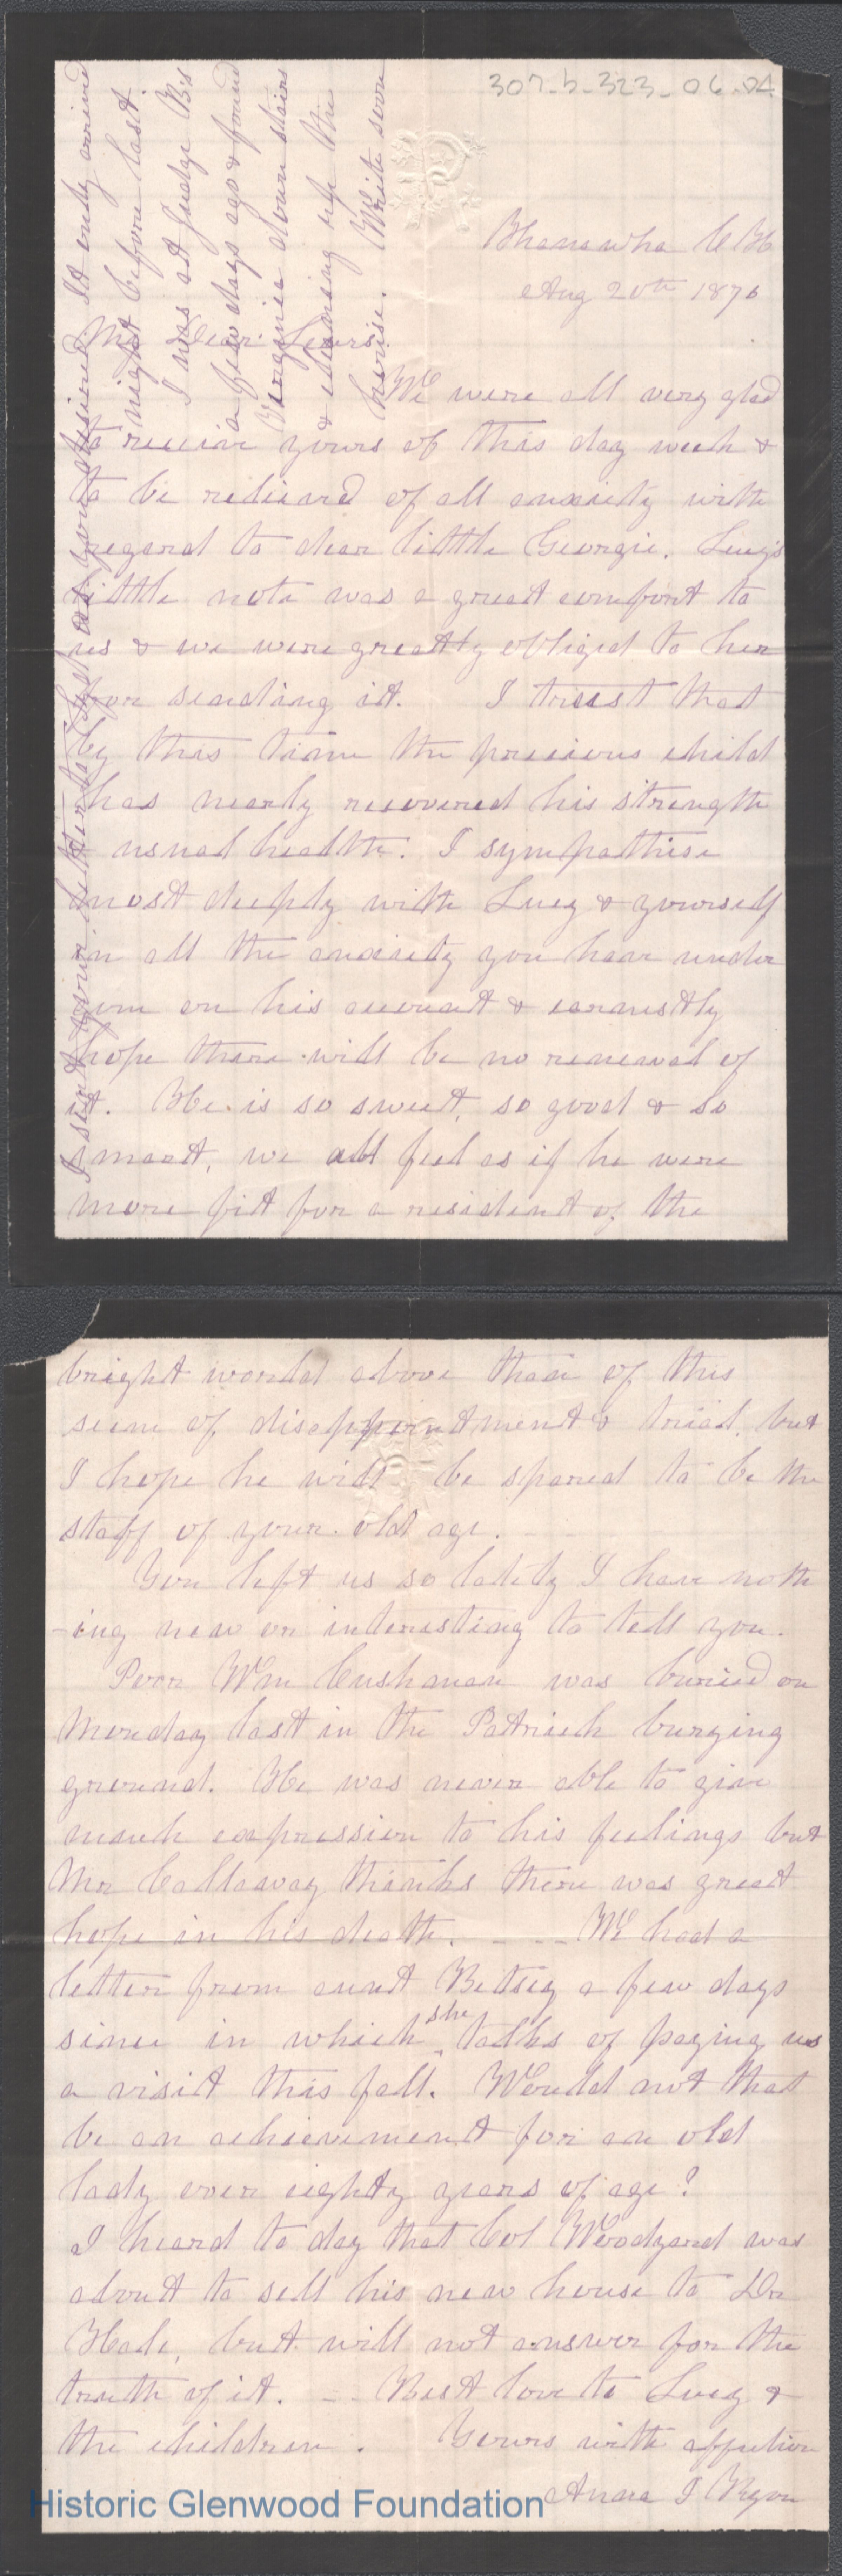 307-b-323-06-04
Khanawha C H
Aug 20th 1870
My Dear Lewis.
We were all very glad
to receive yours of this day week &
to be relieved of all anxiety with
regard to dear little Georgie. Lucy's
little note was a great comfort to
us & we were greatly obliged to her
for sending it. I trust that
by this time the precious child
has nearly recovered his strength
& usual health. I sympathise
most deeply with Lucy & yourself
in all the anxiety you have under
gone on his account & earnestly
hope there will be no renewal of
it. He is so sweet, so good & so
smart, we all feel as if he were
more fit for a resident of the
I sent your letter to just as you desired. It only arrived
night before last.
I was at Judge B's
a few days ago & found
Virginia down stairs
& cleaning up the
house. Write soon
bright world above than of this
scene of disappointment & trial, but
I hope he will be spared to be the
staff of your old age.
You left us so lately I have noth
-ing new or interesting to tell you.
Poor Wm Cushman was buried on
Monday last in the Patrick burying
ground. He was never able to give
much expression to his feelings but
Mr Callaway thinks there was great
hope in his death. - - - - We had a
letter from aunt Betsey a few days
since in which she talks of paying us
a visit this fall. Would not that
be an achievement for an old
lady over eighty years of age?
I heard to day that Col Woodyard was
about to sell his new house to Dr
Hale, but will not answer for the
truth of it. - - Best love to Lucy &
the children. Yours with affection
Anna I
Historic Glenwood Foundation